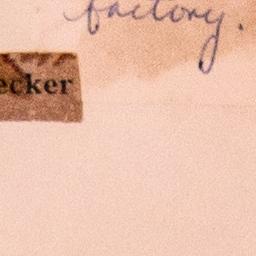 factory.
ecker